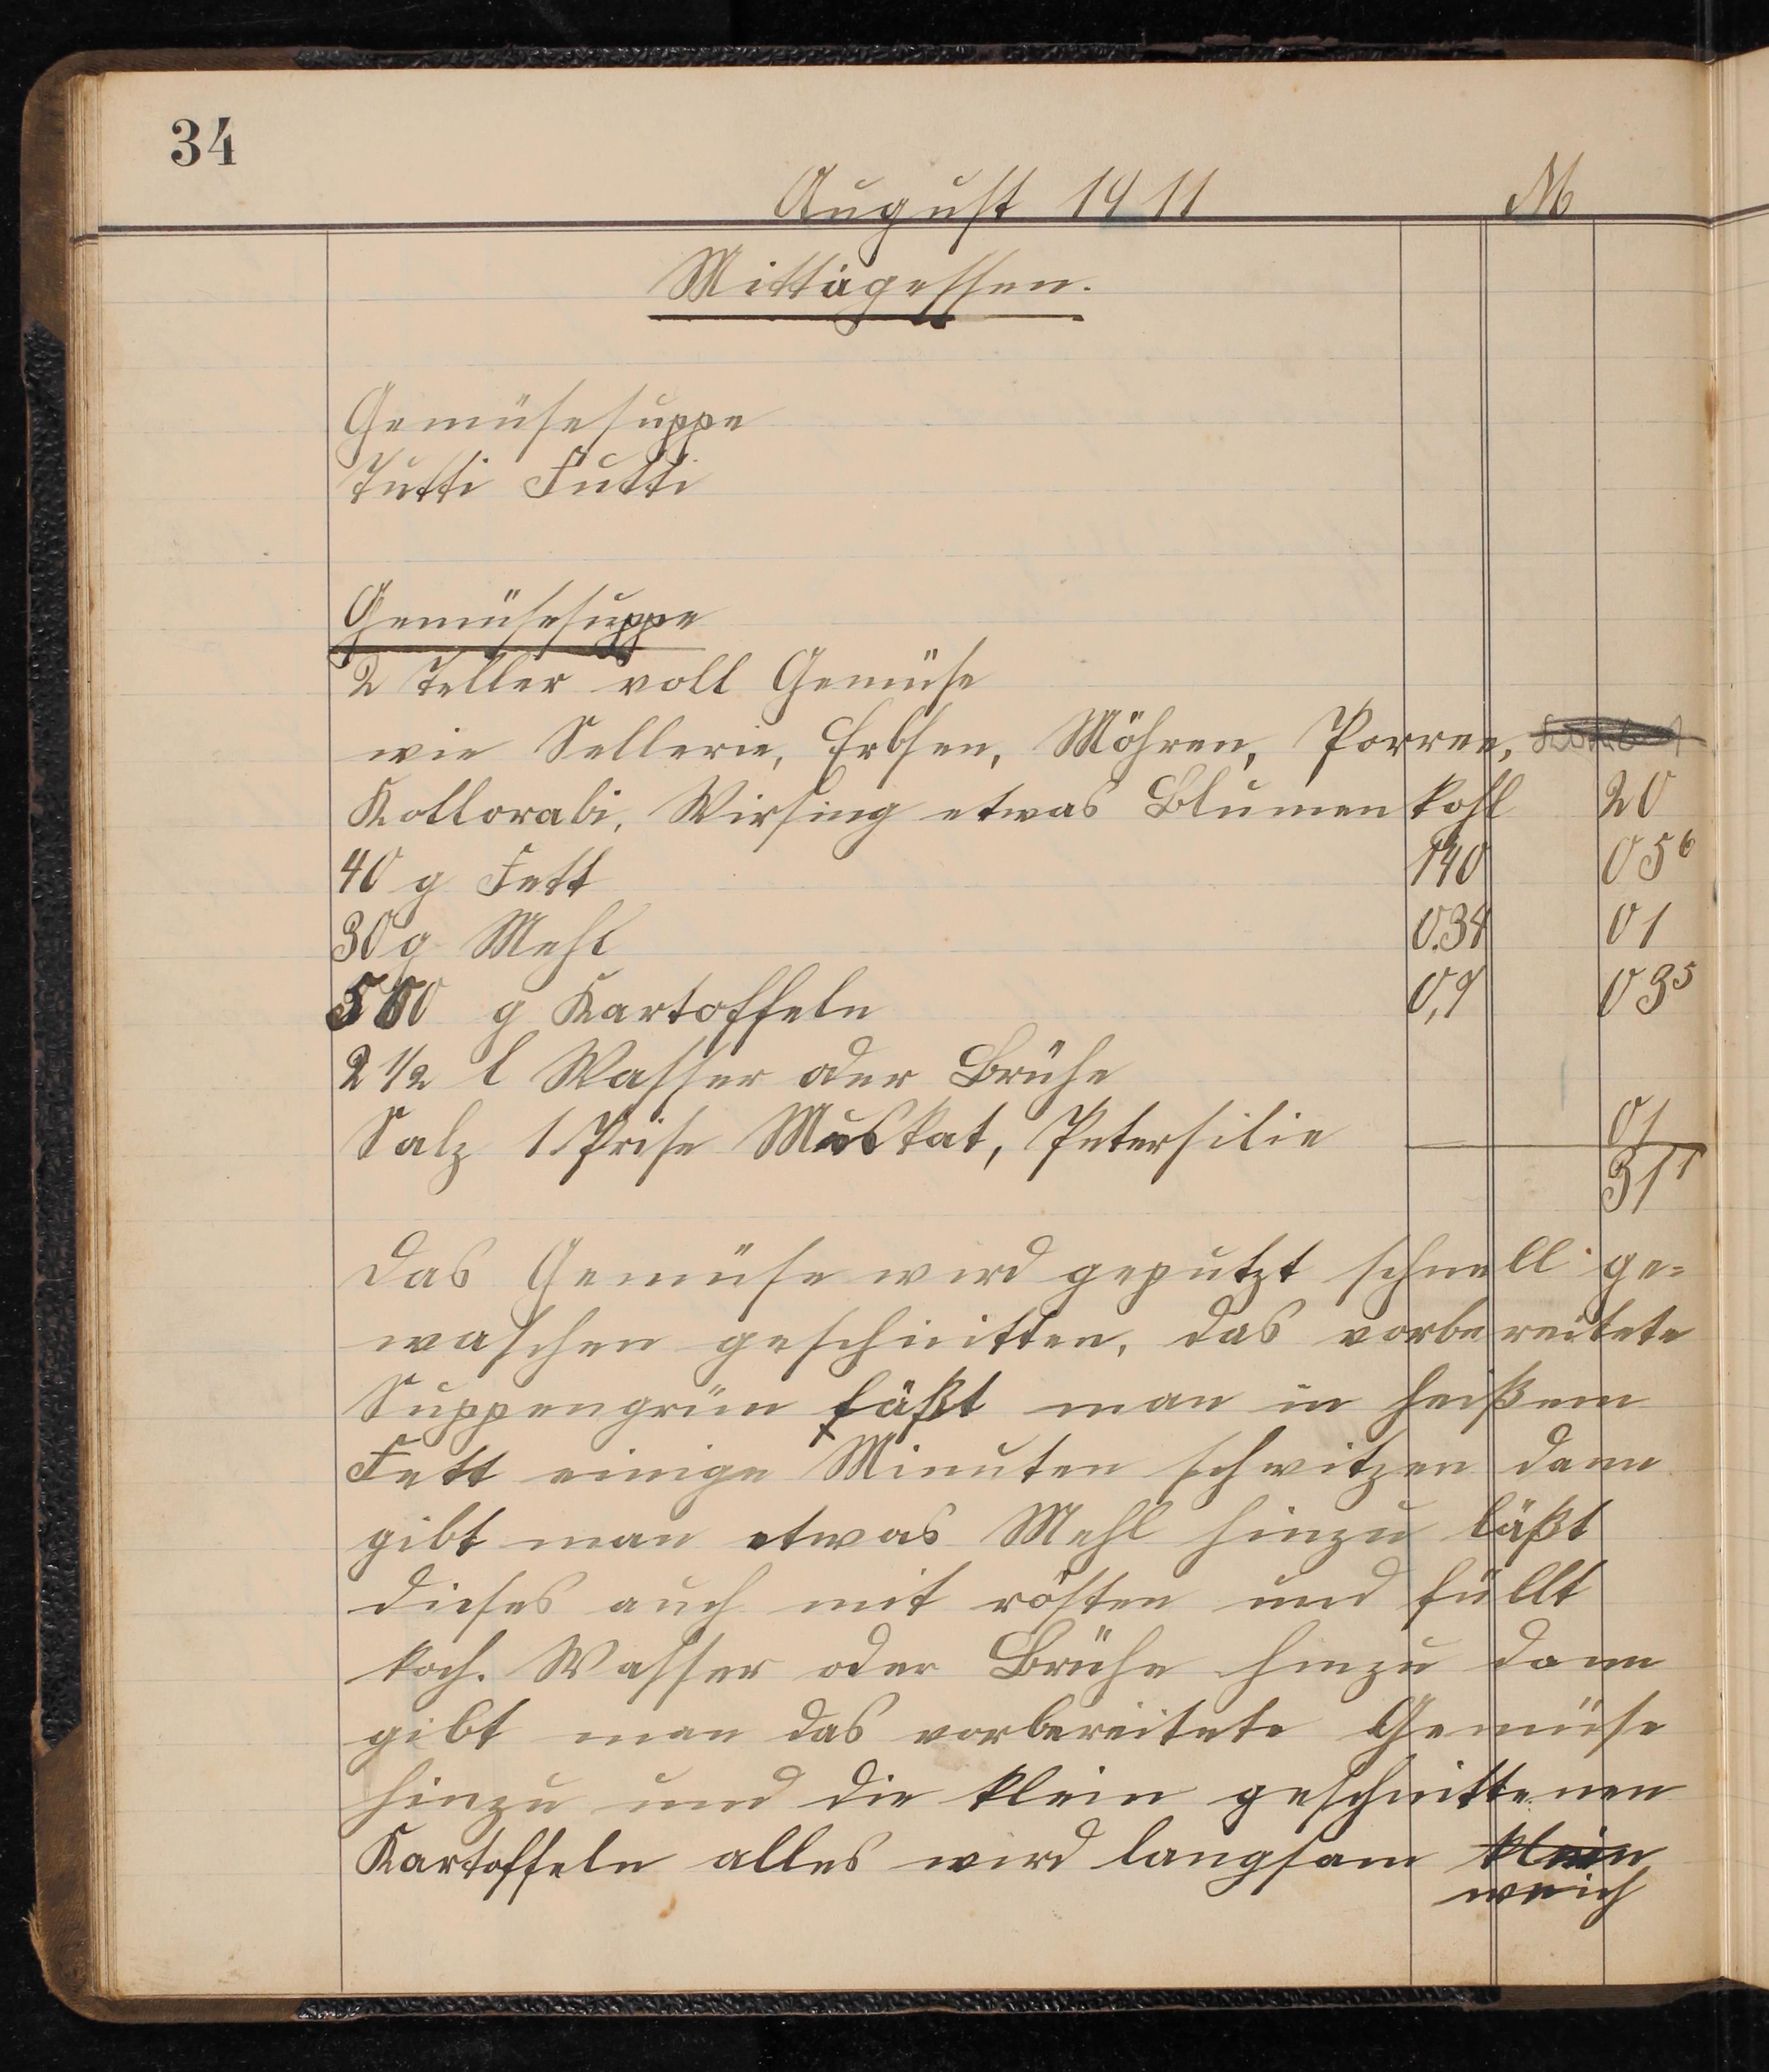 34
August 1911 M
Mittagessen.
Gemüsesuppe
Tutti Futti
Gemüsesuppe
2 Teller voll Gemüse
wie Sellerie, Erbsen, Möhren, Porree,
Kollorabi, Wirsing etwas Blumenkohl 20
40 g Fett 140 05⁶
30 g Mehl 0.34 01
500 g Kartoffeln 0,7 03⁵
2 1/2 l Wasser oder Brühe
Salz 1 Prise Muskat, Petersilie 01
31¹
Das Gemüse wird geputzt schnell ge-
waschen geschnitten, das vorbereitete
Suppengrün läßt man in heißem
Fett einige Minuten schwitzen dann
gibt man etwas Mehl hinzu läßt
dieses auch mit rösten und füllt
koch. Wasser oder Brühe hinzu dann
gibt man das vorbereitete Gemüse
hinzu und die klein geschnittenen
Kartoffeln alles wird langsam klein
weich